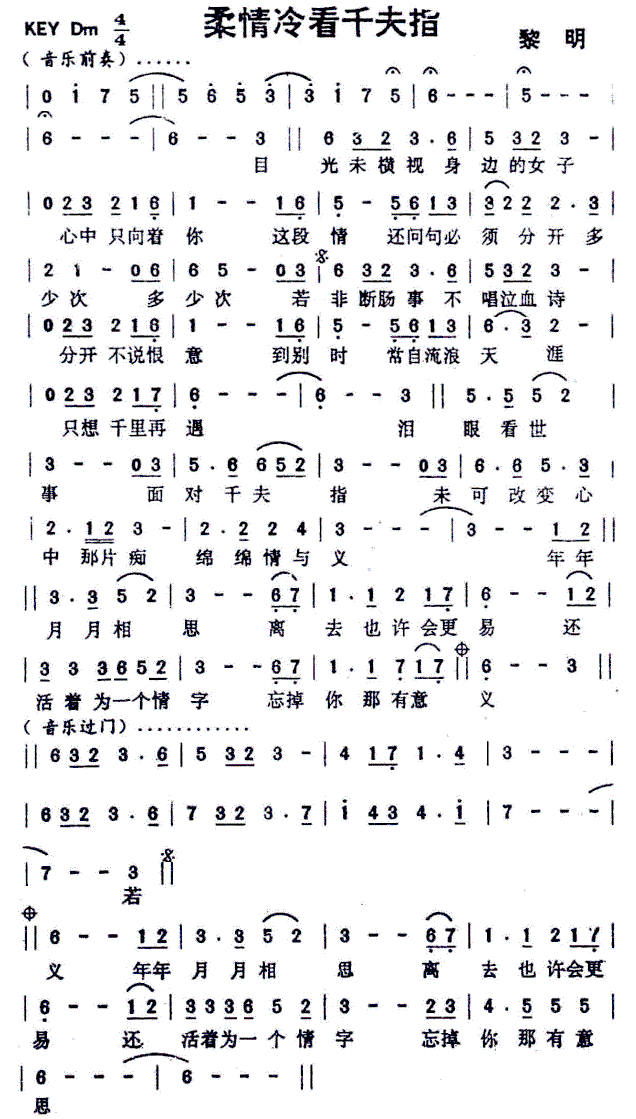 柔情冷看千夫指
KEY Dm 4/4
黎 明
( 音乐前奏) ......
| 0 1 7 5 || 5 6 5 3 | 3 1 7 5 | 6 - - - | 5 - - - |
| 6 - - - | 6 - - 3 || 6 3 2 3 . 6 | 5 3 2 3 - |
目 光未横视身 边的女子
| 0 2 3 2 1 6 | 1 - - 1 6 | 5 - 5 6 1 3 | 3 2 2 2 . 3 |
心中 只向着 你 这段 情 还问句必 须 分 开 多
| 2 1 - 0 6 | 6 5 - 0 3 | 6 3 2 3 . 6 | 5 3 2 3 - |
少 次 多 少次 若 非断肠事不 唱泣血诗
| 0 2 3 2 1 6 | 1 - - 1 6 | 5 - 5 6 1 3 | 6 . 3 2 - |
分开 不说恨 意 到别 时 常自流浪 天 涯
| 0 2 3 2 1 7 | 6 - - - | 6 - - 3 || 5 . 5 5 2 |
只想 千里再 遇 泪 眼看世
| 3 - - 0 3 | 5 . 6 6 5 2 | 3 - - 0 3 | 6 . 6 5 . 3 |
事 面 对 千 夫 指 未 可 改 变 心
| 2 . 1 2 3 - | 2 . 2 2 4 | 3 - - - | 3 - - 1 2 ||
中 那片 痴 绵 绵 情 与 义 年年
|| 3 . 3 5 2 | 3 - - 6 7 | 1 . 1 2 1 7 | 6 - - 1 2 |
月 月相 思 离 去 也许 会更 易 还
| 3 3 3 6 5 2 | 3 - - 6 7 | 1 . 1 7 1 7 || 6 - - 3 ||
活 着 为一个情 字 忘掉 你 那 有意 义
( 音乐过门) ............
|| 6 3 2 3 . 6 | 5 3 2 3 - | 4 1 7 1 . 4 | 3 - - - |
| 6 3 2 3 . 6 | 7 3 2 3 . 7 | 1 4 3 4 . 1 | 7 - - - |
| 7 - - 3 ||
若
|| 6 - - 1 2 | 3 . 3 5 2 | 3 - - 6 7 | 1 . 1 2 1 7 |
义 年年 月 月相 思 离 去 也 许会更
| 6 - - 1 2 | 3 3 3 6 5 2 | 3 - - 2 3 | 4 . 5 5 5 |
易 还 活着为一 个 情 字 忘掉 你 那 有 意
| 6 - - - | 6 - - - ||
思